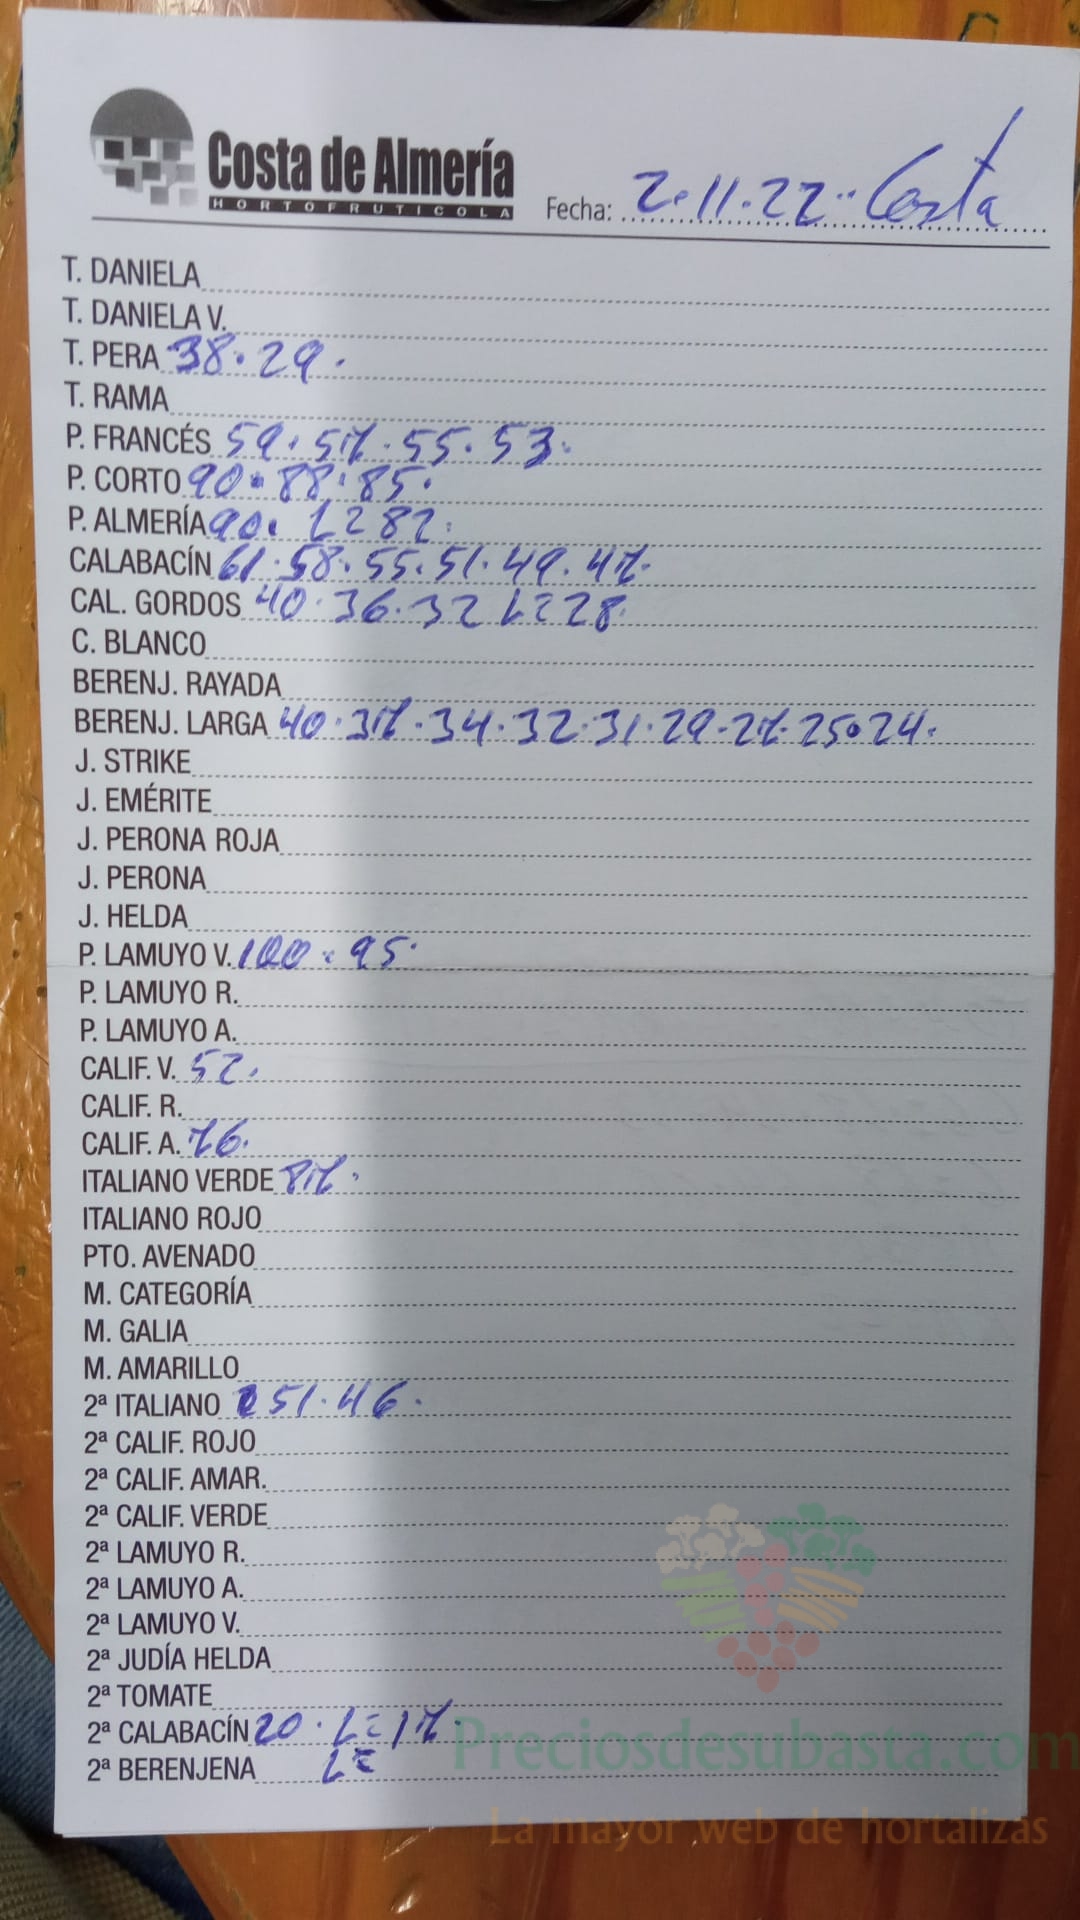 Costa de Almería
HORTOFRUTICOLA
Fecha: 2.11.22.. Costa
T. DANIELA
T. DANIELA V.
T. PERA 38.29.
T. RAMA
P. FRANCÉS 59.57.55.53.
P. CORTO 90.88.85.
P. ALMERÍA 90. L= 82.
CALABACÍN 61.58.55.51.49.47.
CAL. GORDOS 40.36.32 L=28.
C. BLANCO
BERENJ. RAYADA
BERENJ. LARGA 40.37.34.32.31.29.27.25.24.
J. STRIKE
J. EMÉRITE
J. PERONA ROJA
J. PERONA
J. HELDA
P. LAMUYO V. 100.95.
P. LAMUYO R.
P. LAMUYO A.
CALIF. V. 52.
CALIF. R.
CALIF. A. 76.
ITALIANO VERDE 87.
ITALIANO ROJO
PTO. AVENADO
M. CATEGORÍA
M. GALIA
M. AMARILLO
2ª ITALIANO 51.46.
2ª CALIF. ROJO
2ª CALIF. AMAR.
2ª CALIF. VERDE
2ª LAMUYO R.
2ª LAMUYO A.
2ª LAMUYO V.
2ª JUDÍA HELDA
2ª TOMATE
2ª CALABACÍN 20. L= 17.
2ª BERENJENA L=
Preciosdesubasta.com
La mayor web de hortalizas